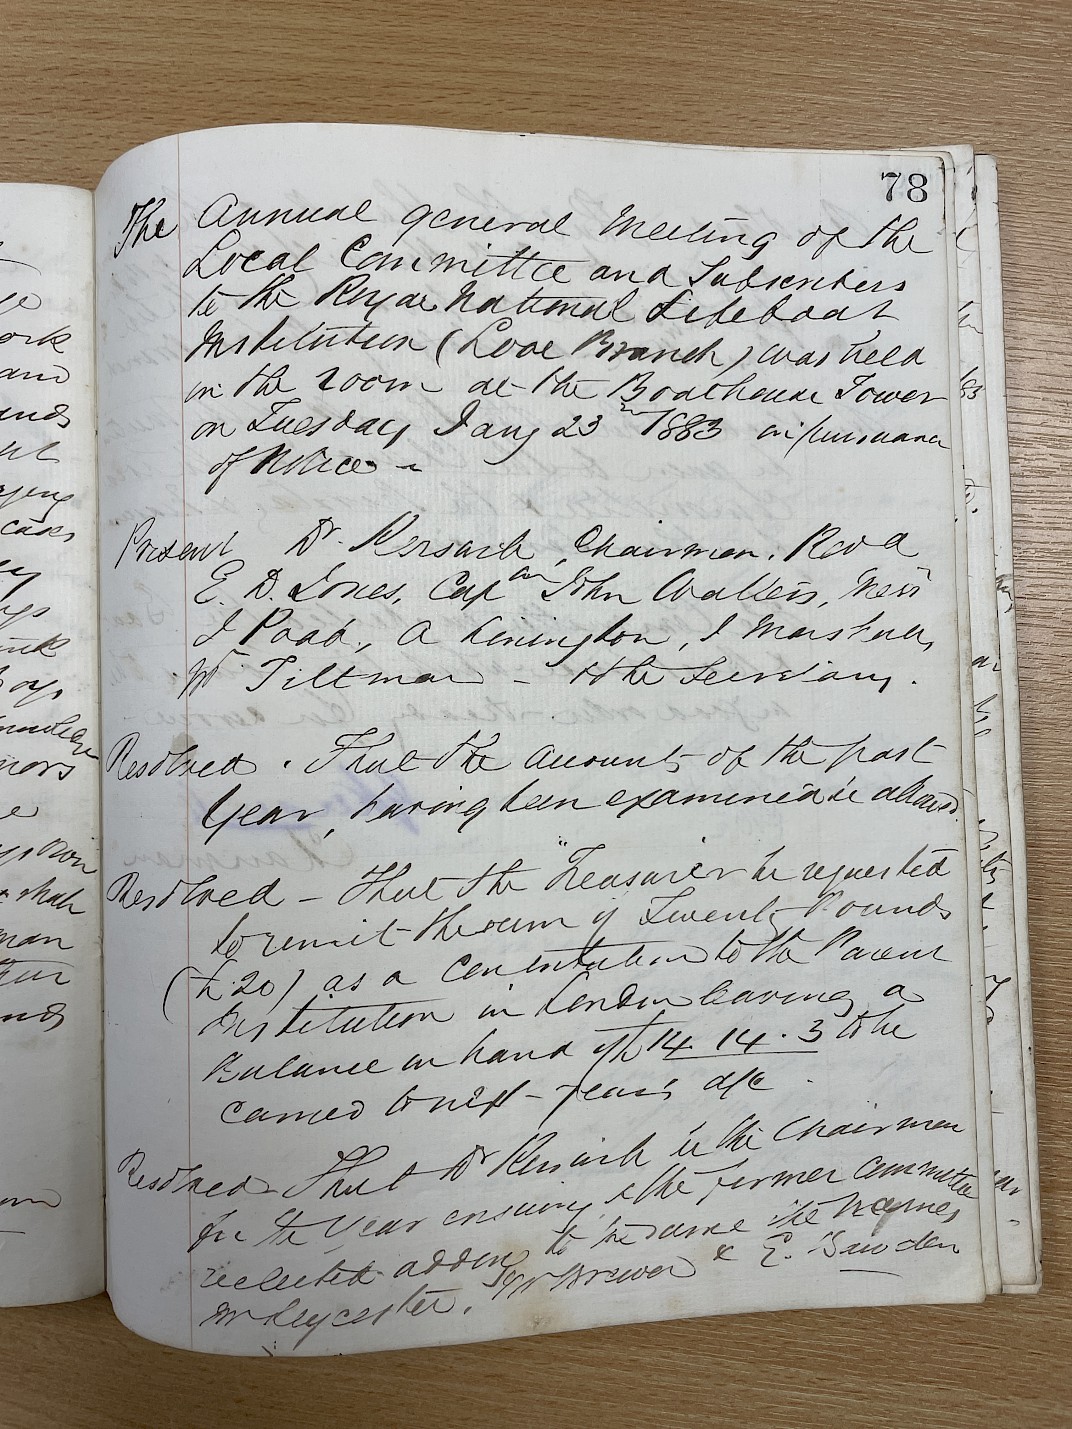 78
The Annual general Meeting of the
Local Committee and Subscribers
to the Royal National Lifeboat
Institution (Looe Branch) was held
in the room at the Boathouse Tower
on Tuesday Jany 23rd 1883 in pursuance
of Notice
Present Dr. Kerswill, Chairman. Revd
E. D. Jones, Capn John Walters, Messrs
J Poad, A Kinington, J Marshall,
W Tiltman - & the Secretary.
Resolved. That the accounts of the past
Year, having been examined be allowed.
Resolved - That the Treasurer be requested
to remit the sum of Twenty Pounds
(£20) as a contribution to the Parent
Institution in London leaving a
Balance in hand of £14. 14. 3 to be
carried to next year's a/c.
Resolved - That Dr Kerswill be the Chairman
for the Year ensuing, & the former Committee
reelected adding to the same the names
Mr Brewer & E. Bawden
Mr Leycester.